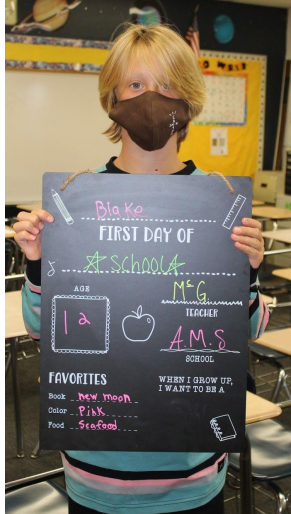 Blake
FIRST DAY OF
SCHOOL
AGE
12
Ms G.
TEACHER
A.M.S
SCHOOL
FAVORITES
Book new moon
Color Pink
Food Seafood
WHEN I GROW UP,
I WANT TO BE A